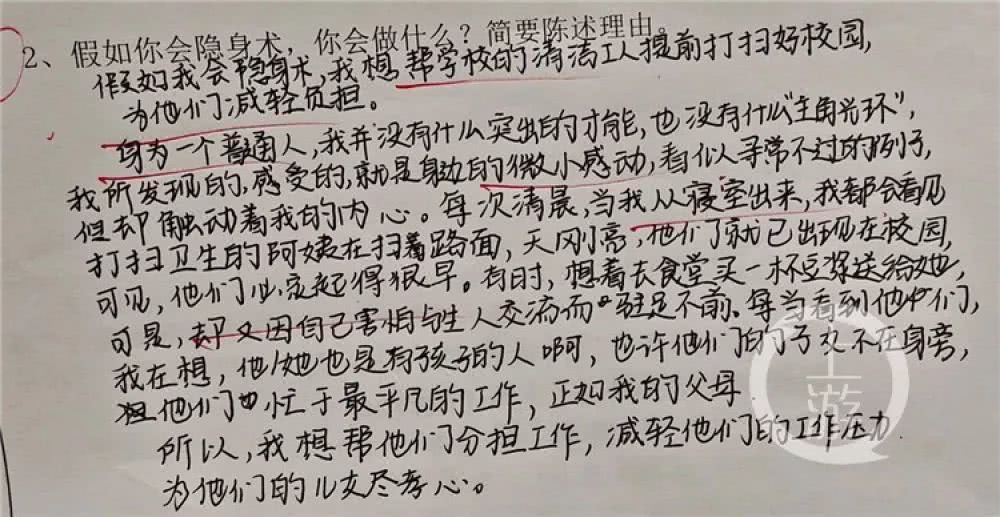 2、假如你会隐身术，你会做什么？简要陈述理由。
假如我会隐身术，我想帮学校的清洁工人提前打扫好校园，
为他们减轻负担。
身为一个普通人，我并没有什么突出的才能，也没有什么“主角光环”，
我所发现的，感受的，就是身边的微小感动，看似寻常不过的例子，
但却触动着我的内心。每次清晨，当我从寝室出来，我都会看见
打扫卫生的阿姨在扫着路面，天刚亮，他们就已出现在校园，
可见，他们必定起得很早。有时，想着去食堂买一杯豆浆送给她，
可是，却又因自己害怕与生人交流而驻足不前。每当看到他们，
我在想，他/她也是有孩子的人啊，也许他们的子女不在身旁，
他们忙于最平凡的工作，正如我的父母
所以，我想帮他们分担工作，减轻他们的工作压力
为他们的儿女尽孝心。
上游